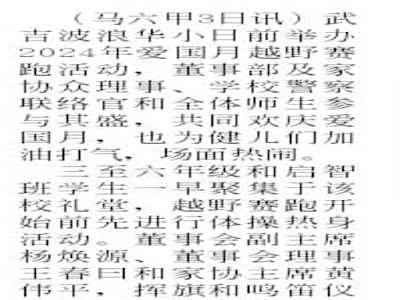 （马六甲3日讯）武
吉波浪华小日前举办
2024年爱国月越野赛
跑活动，董事部及家
协众理事、学校警察
联络官和全体师生参
与其盛，共同欢庆爱
国月，也为健儿们加
油打气，场面热闹。
三至六年级和启智
班学生一早聚集于该
校礼堂，越野赛跑开
始前先进行体操热身
活动。董事会副主席
杨焕源、董事会理事
王春曰和家协主席黄
伟平，挥旗和鸣笛仪